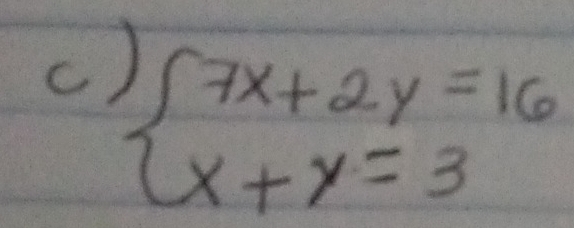 c) { 7x + 2y = 16
x + y = 3